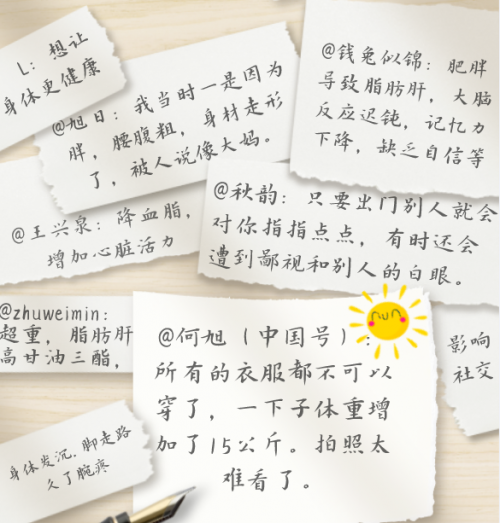 L：想让
身体更健康
@旭日：我当时一是因为
胖，腰腹粗，身材走形
了，被人说像大妈。
@钱兔似锦：肥胖
导致脂肪肝，大脑
反应迟钝，记忆力
下降，缺乏自信等
@王兴泉：降血脂，
增加心脏活力
@秋韵：只要出门别人就会
对你指指点点，有时还会
遭到鄙视和别人的白眼。
@zhuweimin：
超重，脂肪肝
高甘油三酯，
@何旭（中国号）：
所有的衣服都不可以
穿了，一下子体重增
加了15公斤。拍照太
难看了。
影响
社交
身体发沉，脚走路
久了腕疼